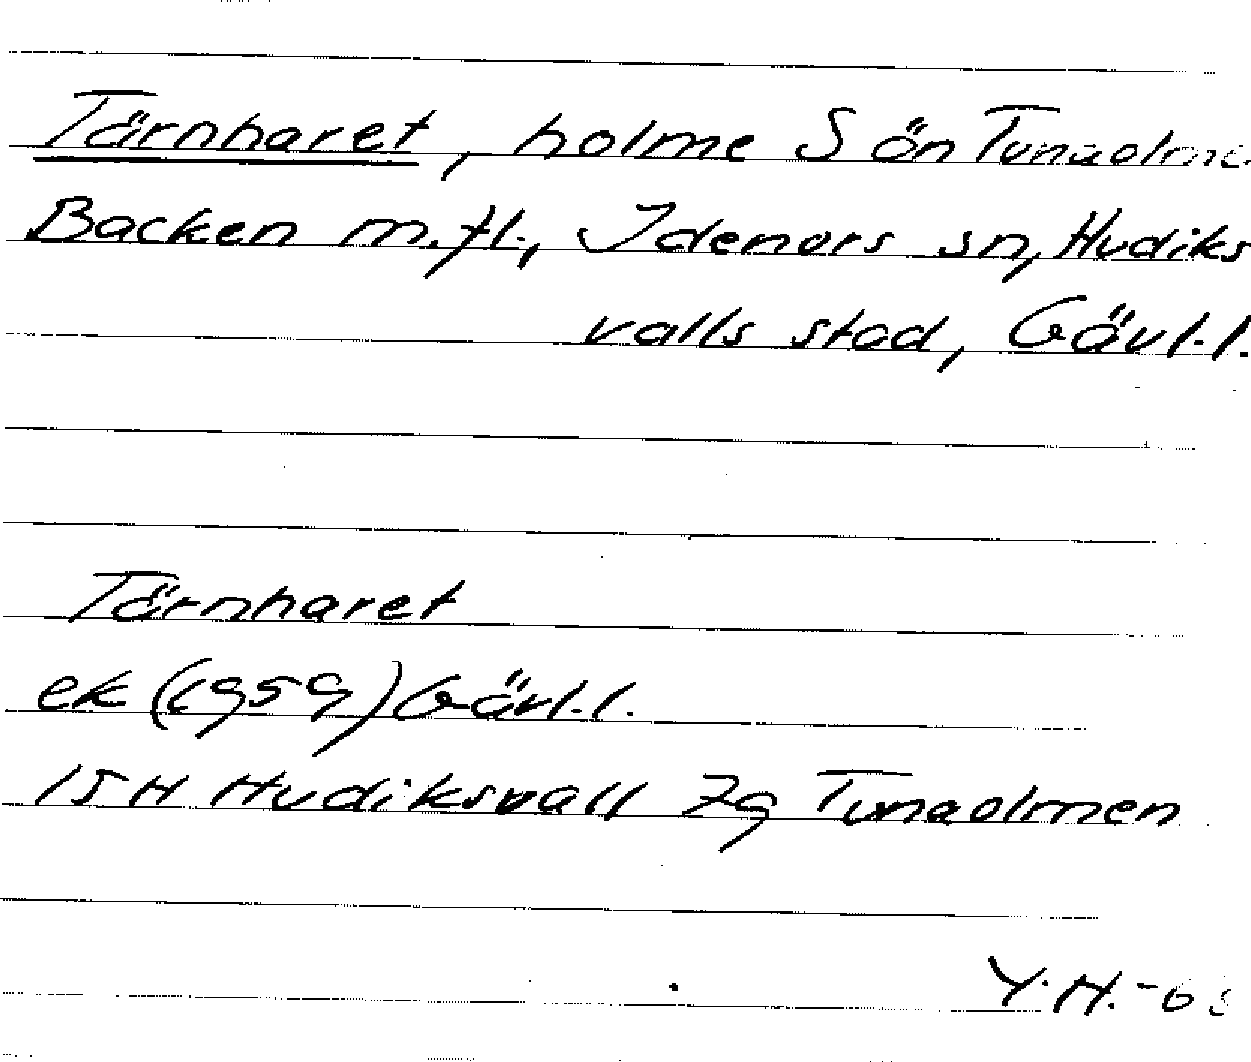 Tärnharet, holme S ön Tunaolme
Backen m.fl., Idenors sn, Hudiks
valls stad, Gävl.l.
Tärnharet
ek (1959) Gävl.l.
15H Hudiksvall 7g Tunaolmen
Y.H.-6